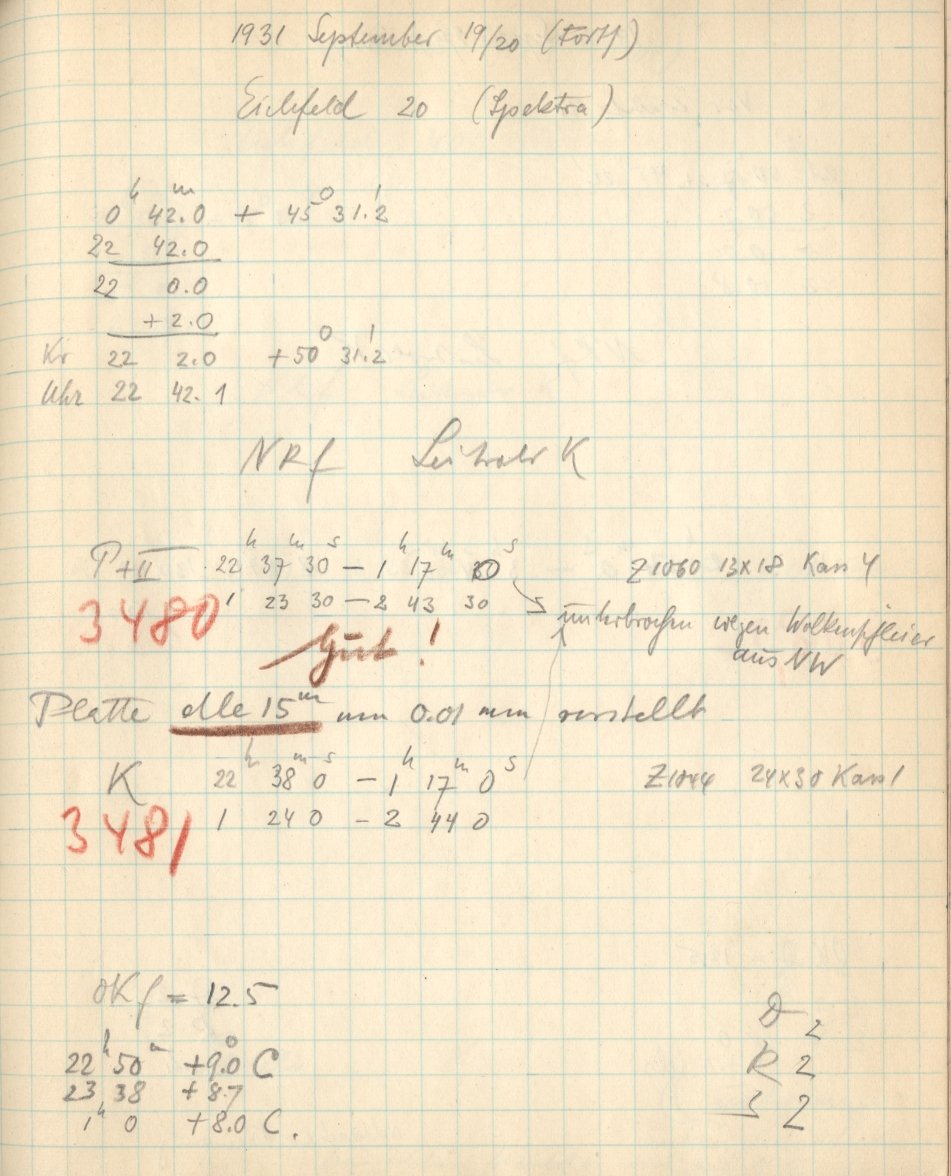 1931 September 19/20 (Forts)
Eichfeld 20 (Spektra)
0ʰ 42.0ᵐ + 45° 31.'2
22 42.0
22 0.0
+2.0
Kr 22 2.0 +50° 31.'2
Uhr 22 42.1
NRf Leitrohr K
P+II 22ʰ 37ᵐ 30ˢ – 1ʰ 17ᵐ 30ˢ Z1060 13x18 Kass 4
1 23 30 – 2 43 30
unterbrochen wegen Wolkenschleier
aus NW
3480
Gut!
Platte alle 15ᵐ um 0.01 mm verstellt
K 22ʰ 38ᵐ 0ˢ – 1ʰ 17ᵐ 0ˢ Z1044 24x30 Kass 1
1 24 0 – 2 44 0
3481
OKf = 12.5
22ʰ 50ᵐ +9.0° C
23 38 +8.7
1ʰ 0 +8.0 C.
D 2
R 2
S 2